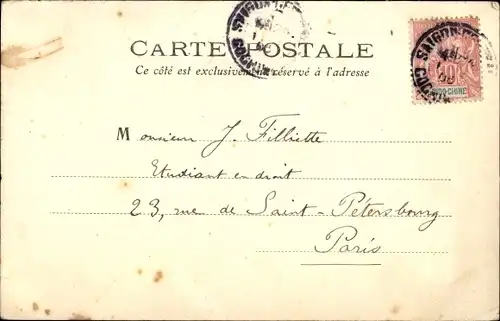 CARTE POSTALE
Ce côté est exclusivement réservé à l'adresse
SAIGON
SAIGON
10
INDO-CHINE
Monsieur J. Filliette
Etudiant en droit
23, rue de Saint-Pétersbourg
Paris